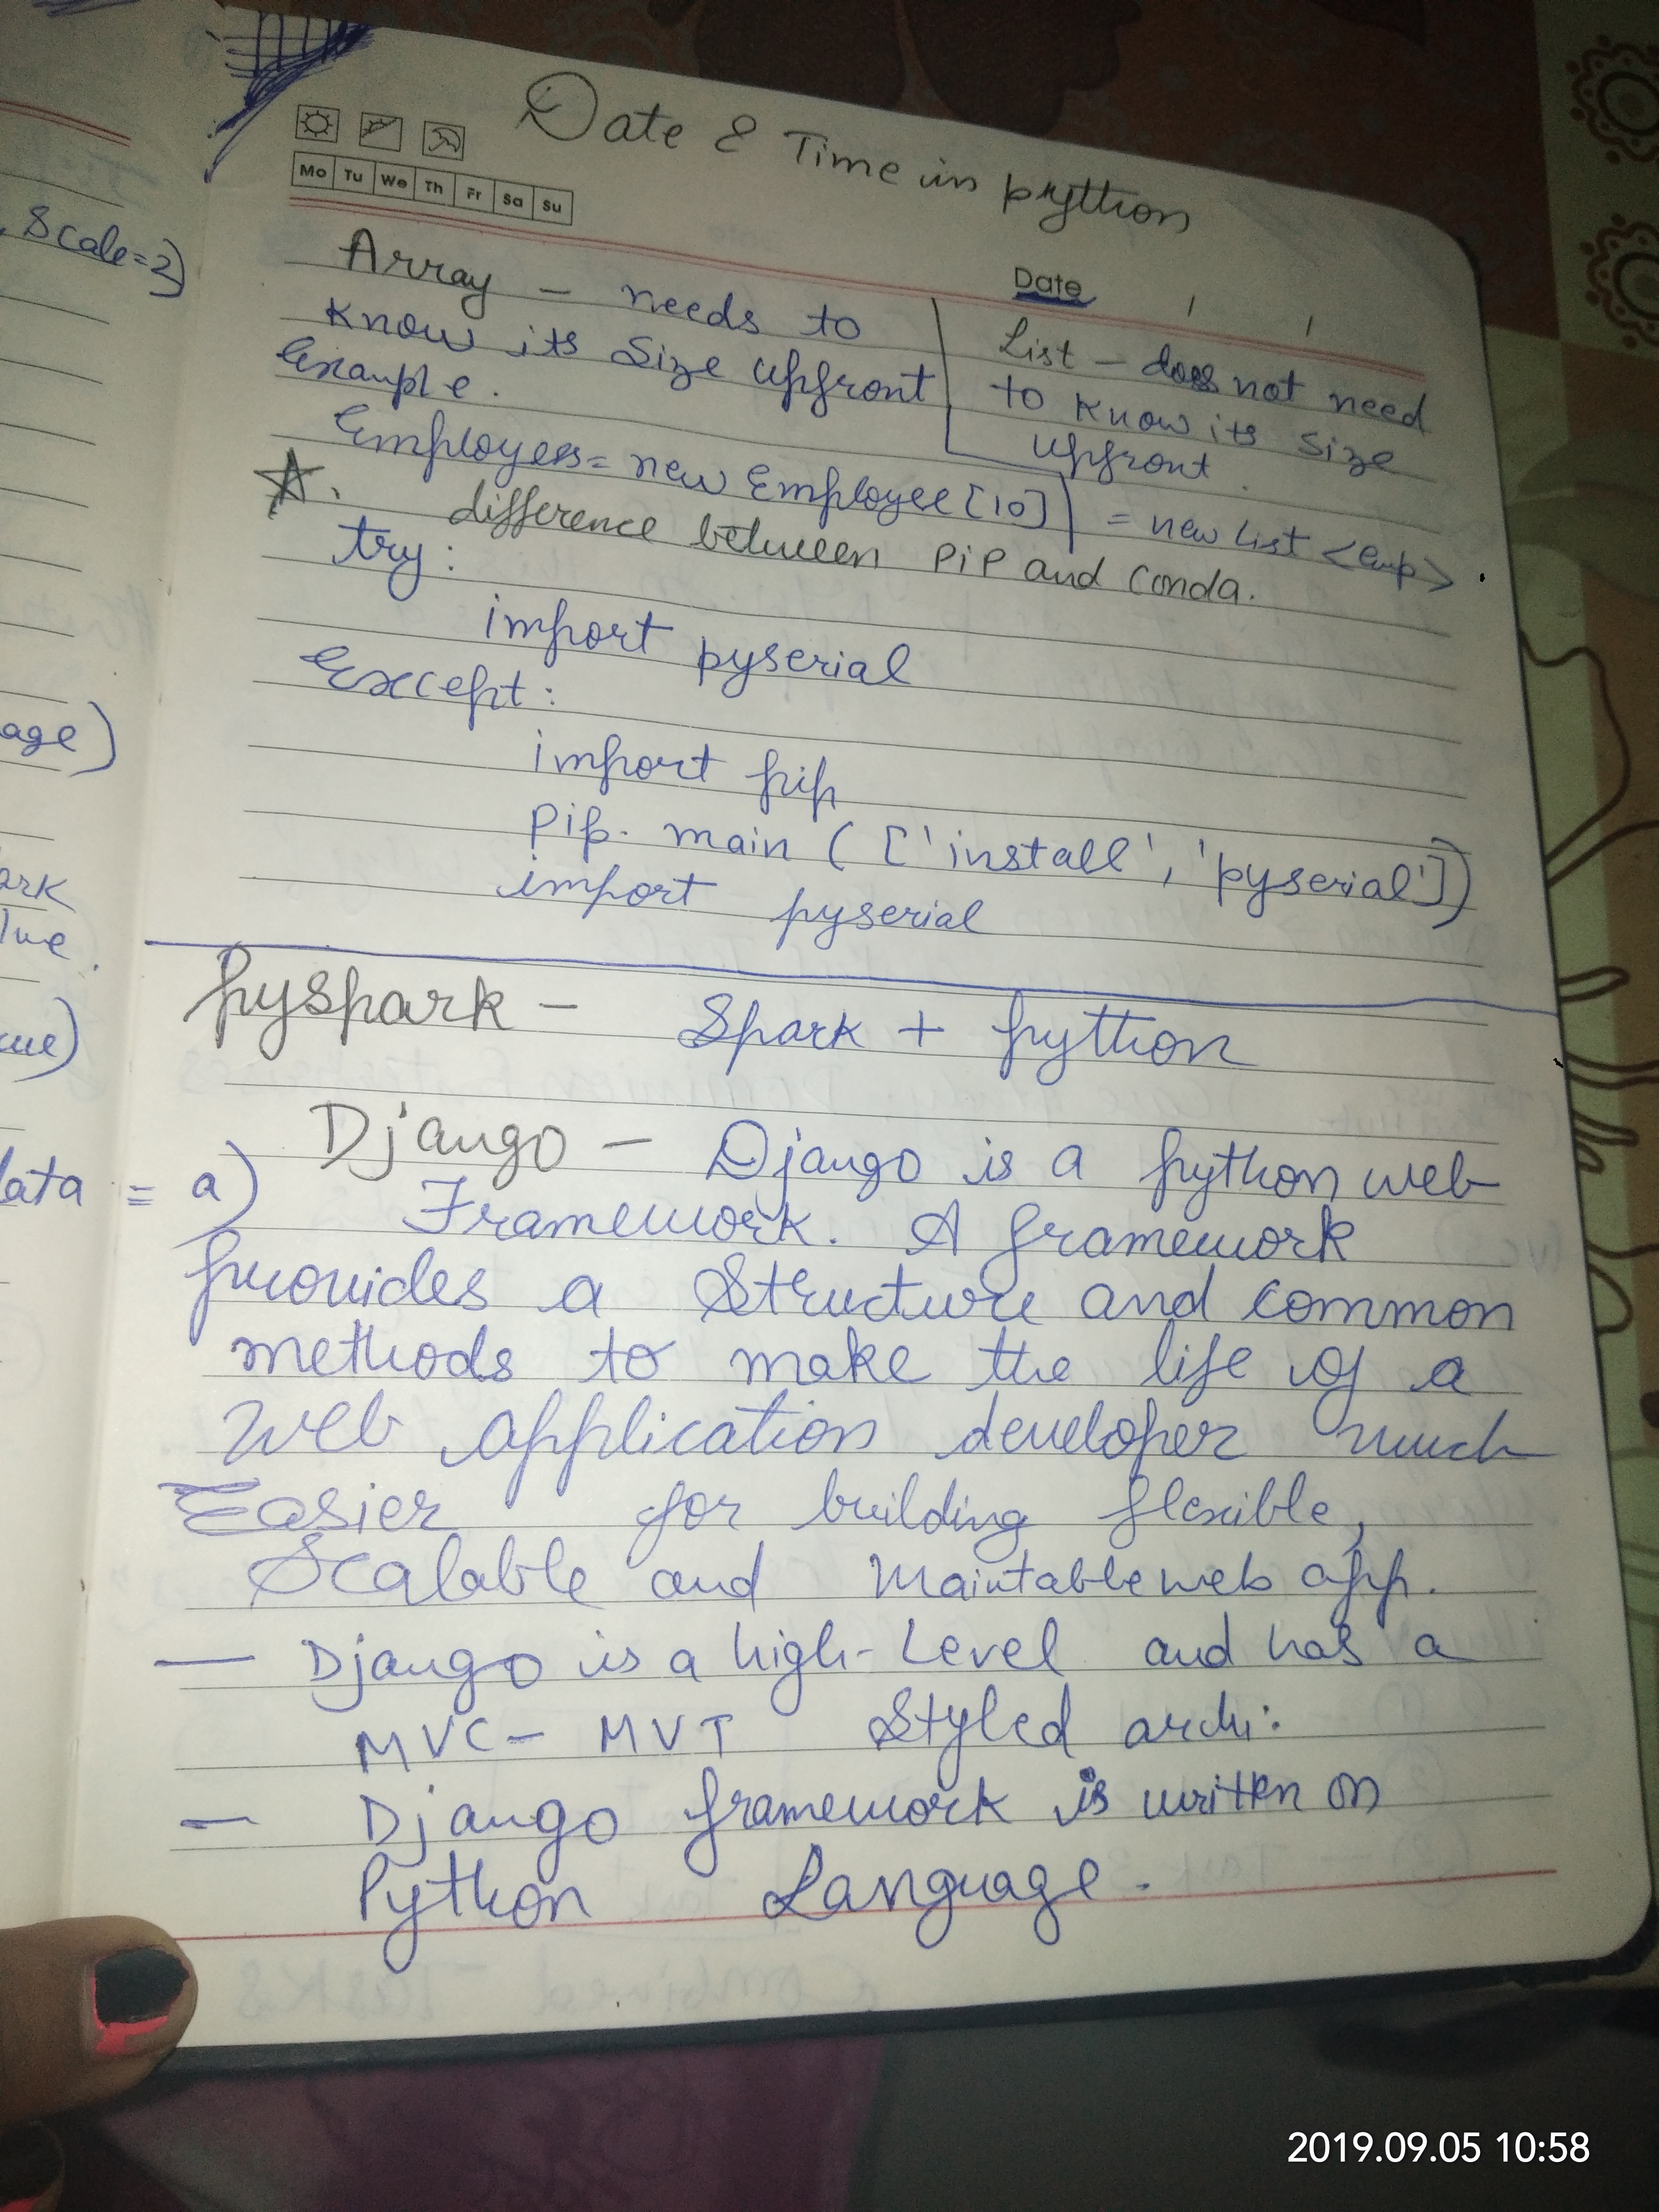 Date & Time in python
Mo Tu We Th Fr Sa Su
Date / /
, Scale=2)
age)
ark
lue.
ue)
data = a)
Array - needs to
know its Size upfront
Example.
List - does not need
to know its size
upfront.
Employees= new Employee[10] = new List <emp>.
difference between PiP and Conda.
try:
import pyserial
Except:
import pip
Pip. main (['install', 'pyserial'])
import pyserial
Pyspark - Spark + Python
Django - Django is a python web
Framework. A framework
provides a Structure and common
methods to make the life of a
web application developer much
Easier for building flexible,
Scalable and Maintable web app.
— Django is a high-Level and has a
MVC- MVT Styled archi:
— Django framework is written on
Python Language.
2019.09.05 10:58